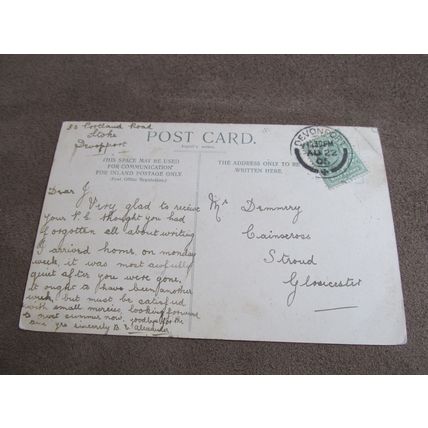 80 Portland Road
Stoke
Devonport
POST CARD.
THIS SPACE MAY BE USED
FOR COMMUNICATION
FOR INLAND POSTAGE ONLY
(Post Office Regulation.)
THE ADDRESS ONLY TO BE
WRITTEN HERE.
DEVONPORT
PM
AU 22
Dear J,
Very glad to receive
your P.C. thought you had
forgotten all about writing
I arrived home on monday
week, it was most awfully
quiet after you were gone,
it ought to have been another
week, but must be satisfied
with small mercies, looking forward
to next summer now, goodbye for the
yrs sincerely B E Alexander
Mr Dammery
Cainscross
Stroud
Gloucester